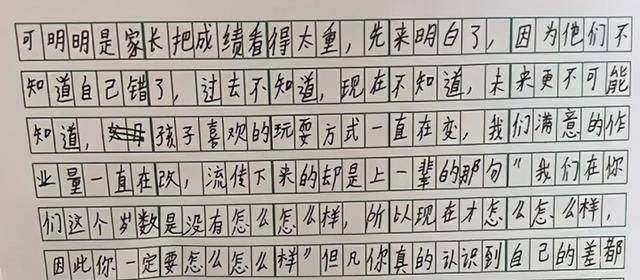 可明明是家长把成绩看得太重，先来明白了，因为他们不
知道自己错了，过去不知道，现在不知道，未来更不可能
知道，孩子喜欢的玩耍方式一直在变，我们满意的作
业量一直在改，流传下来的却是上一辈的那句“我们在你
们这个岁数是没有怎么怎么样，所以现在才怎么怎么样，
因此你一定要怎么怎么样”但凡你真的认识到自己的差都